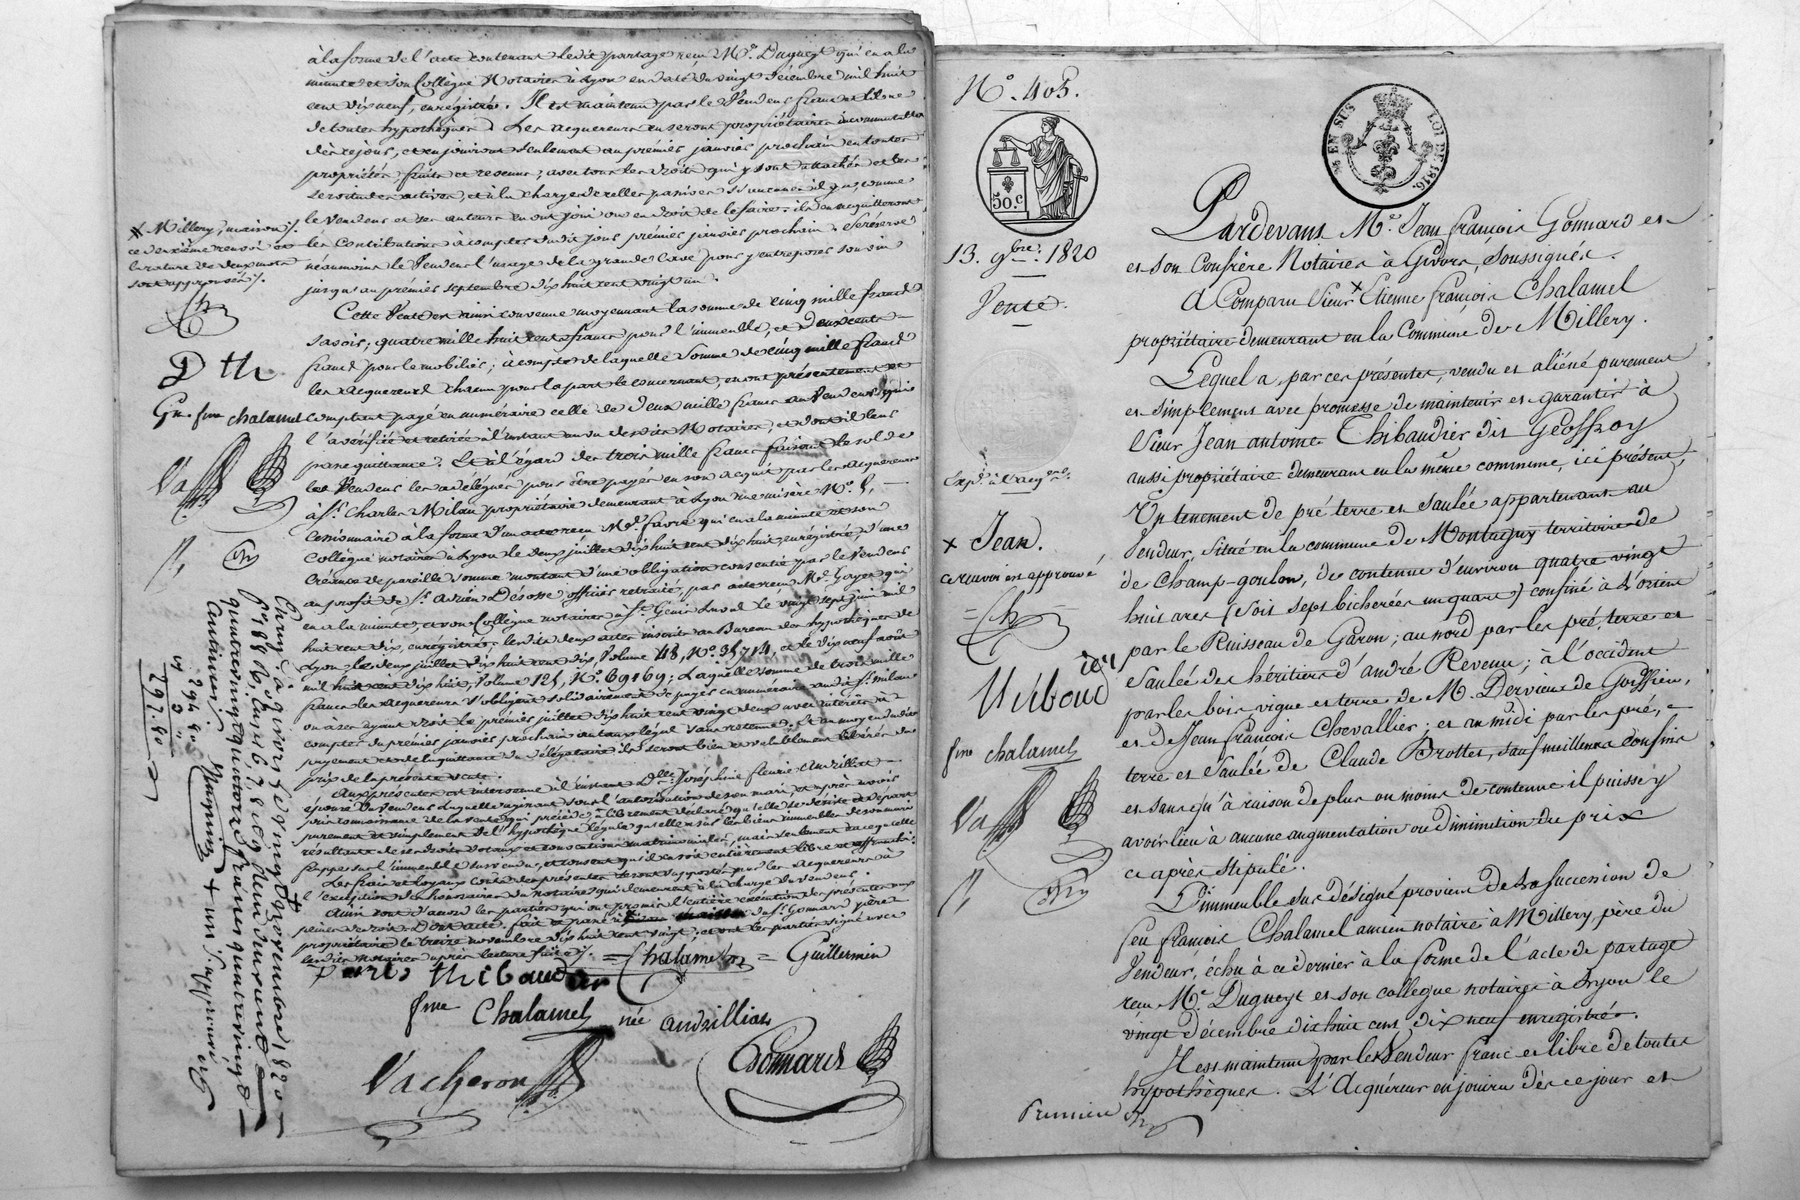 à la forme de l'acte contenant ledit partage reçu Me. Dugueyt qui en a la
minute et son Collègue Notaires à Lyon en date du vingt décembre mil huit
cent dix neuf, enregistré. Il est maintenu par le Vendeur franc et libre
de toutes hypothèques. Les acquereurs en seront propriétaires incommutables
dès ce jour, et en jouiront seulement au premier janvier prochain en toutes
propriétés fruits et revenus; avec tous les droits qui y sont attachés et les
servitudes actives, et à la charge de celles passives s'il y en a, comme
le Vendeur et ses auteurs en ont joui ou eu droit de le faire. ils en acquitteront
les Contributions à compter dudit jour premier janvier prochain. Se réserve
néanmoins le Vendeur l'usage de la grande Cave pour y entreposer son vin
jusqu'au premier septembre dix huit cent vingt un.
Cette Vente est ainsi convenue moyennant la somme de cinq mille francs
savoir; quatre mille huit cents francs pour l'immeuble, et deux cents
francs pour le mobilier; à compte de laquelle somme de cinq mille francs
les acquereurs chacun pour la part le concernant, en ont présentement et
comptant payé en numéraire celle de deux mille francs au Vendeur qui
l'a vérifiée et retirée à l'instant au vu desdits Notaires, et dont il leur
passe quittance. Et à l'égard des trois mille francs faisant le solde
le Vendeur les a délégués pour être payés en son acquit par les acquereurs
à Sr. Charles Milan propriétaire demeurant à Lyon rue misère No. 5,
Cessionnaire à la forme d'un acte reçu Me. favre qui en a la minute et son
Collègue notaires à Lyon le deux juillet dix huit cent dix huit, enregistré, d'une
Créance de pareille somme montant d'une obligation consentie par le Vendeur
au profit de Sr. Adrien Désosse officier retraité, par acte reçu Me. Goyer qui
en a la minute, et son Collègue notaires à St. Genis Laval le vingt sept juin mil
huit cent dix, enregistré; lesdits deux actes inscrits au Bureau des hypothèques de
Lyon les deux juillet dix huit cent dix, Volume 48, No. 35714, et le dix neuf août
mil huit cent dix huit, Volume 125, No. 69169; Laquelle somme de trois mille
francs les acquereurs s'obligent solidairement de payer en numéraire audit Sr. Milan
ou à ses ayant droit le premier juillet dix huit cent vingt deux avec intérêts à
compter du premier janvier prochain au taux légal sans retenue. Et au moyen dudit
payement et de la quittance du délégataire ils seront bien et valablement libérés du
prix de la présente vente.
Aux présentes est intervenue à l'instant Dlle. Joséphine fleurie Andrillat
épouse du Vendeur, laquelle agissant sous l'autorisation de son mari, et après avoir
pris connaissance de la vente qui précède, a librement déclaré qu'elle se désiste et départ
purement et simplement de l'hypothèque légale qu'elle a sur les biens immeubles de son mari
résultante de ses droits dotaux et conventions matrimoniales, mais seulement en ce qu'elle
frappe sur l'immeuble susvendu, et consent qu'il en soit entièrement libre et affranchi.
Les frais et loyaux coûts des présentes seront supportés par les acquereurs à
l'exception des honoraires du notaire qui demeurent à la charge du vendeur.
Ainsi sont d'accord les parties qui ont promis l'entière exécution des présentes aux
peines de droit. Dont acte. fait et passé à du Sr. Gonnard père
propriétaire le treize novembre dix huit cent vingt; et ont les parties signé avec
lesdits notaires après lecture faite.
Chalamel Guillermin
P thibaudier
fme Chalamel née andrillat
Vacheron Gonnard
x Millery, maison
ce deuxième renvoi et
la rature de deux mots
sont approuvés.
D th.
Gn. fme chalamel
Va
Enreg. à givors le vingt novembre 1820
fo. 188 Ro. Cases 6, 7, 8 et 9. Reçu deux cent
quatre vingt quatorze francs quatre vingt
Centimes.
294 80
297. 80
No. 405.
50. c
13. 9bre. 1820
Vente.
Expd. à l'acqr.
x Jean.
ce renvoi est approuvé
thiboudier
fme chalamel
Va
EN SUS LOI DE 1816.
Pardevant Me. Jean françois Gonnard et
et son Confrère Notaires à Givors, Soussignés.
A Comparu Sieur x Etienne françois Chalamel
propriétaire demeurant en la Commune de Millery.
Lequel a, par ces présentes, vendu et aliéné purement
et simplement avec promesse de maintenir et garantir à
Sieur Jean antoine Thibaudier dit Geoffroy
aussi propriétaire demeurant en la même commune, ici présent,
Un tenement de pré terre et saulée appartenant au
Vendeur, situé en la commune de Montagny territoire de
de Champ-goulon, de contenue d'environ quatre vingt
huit ares (soit sept bicherées un quart) confiné à l'orient
par le Ruisseau de Garon; au nord par les pré, terre et
Saulée des héritiers d'andré Revenu; à l'occident
par les bois vigne et terre de M. Dervieux de Goiffieu,
et de Jean françois Chevallier; et au midi par les pré,
terre et Saulée de Claude Brottet, sauf meilleurs confins
et sans qu'à raison de plus ou moins de contenue il puisse y
avoir lieu à aucune augmentation ou diminution du prix
ci après stipulé.
L'immeuble sus désigné provient de la succession de
feu françois Chalamel ancien notaire à Millery, père du
Vendeur, échu à ce dernier à la forme de l'acte de partage
reçu Me. Dugueyt et son collègue notaires à Lyon le
vingt décembre dix huit cent dix neuf enregistré.
Il est maintenu par le Vendeur franc et libre de toutes
hypothèques. L'Acquéreur en jouira dès ce jour et
Premier